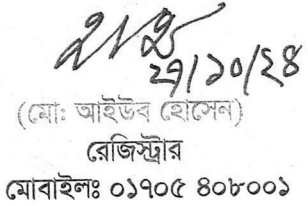 ২৭/১০/২৪
(মো: আইউব হোসেন)
রেজিস্ট্রার
মোবাইলঃ ০১৭০৫ ৪০৮০০১